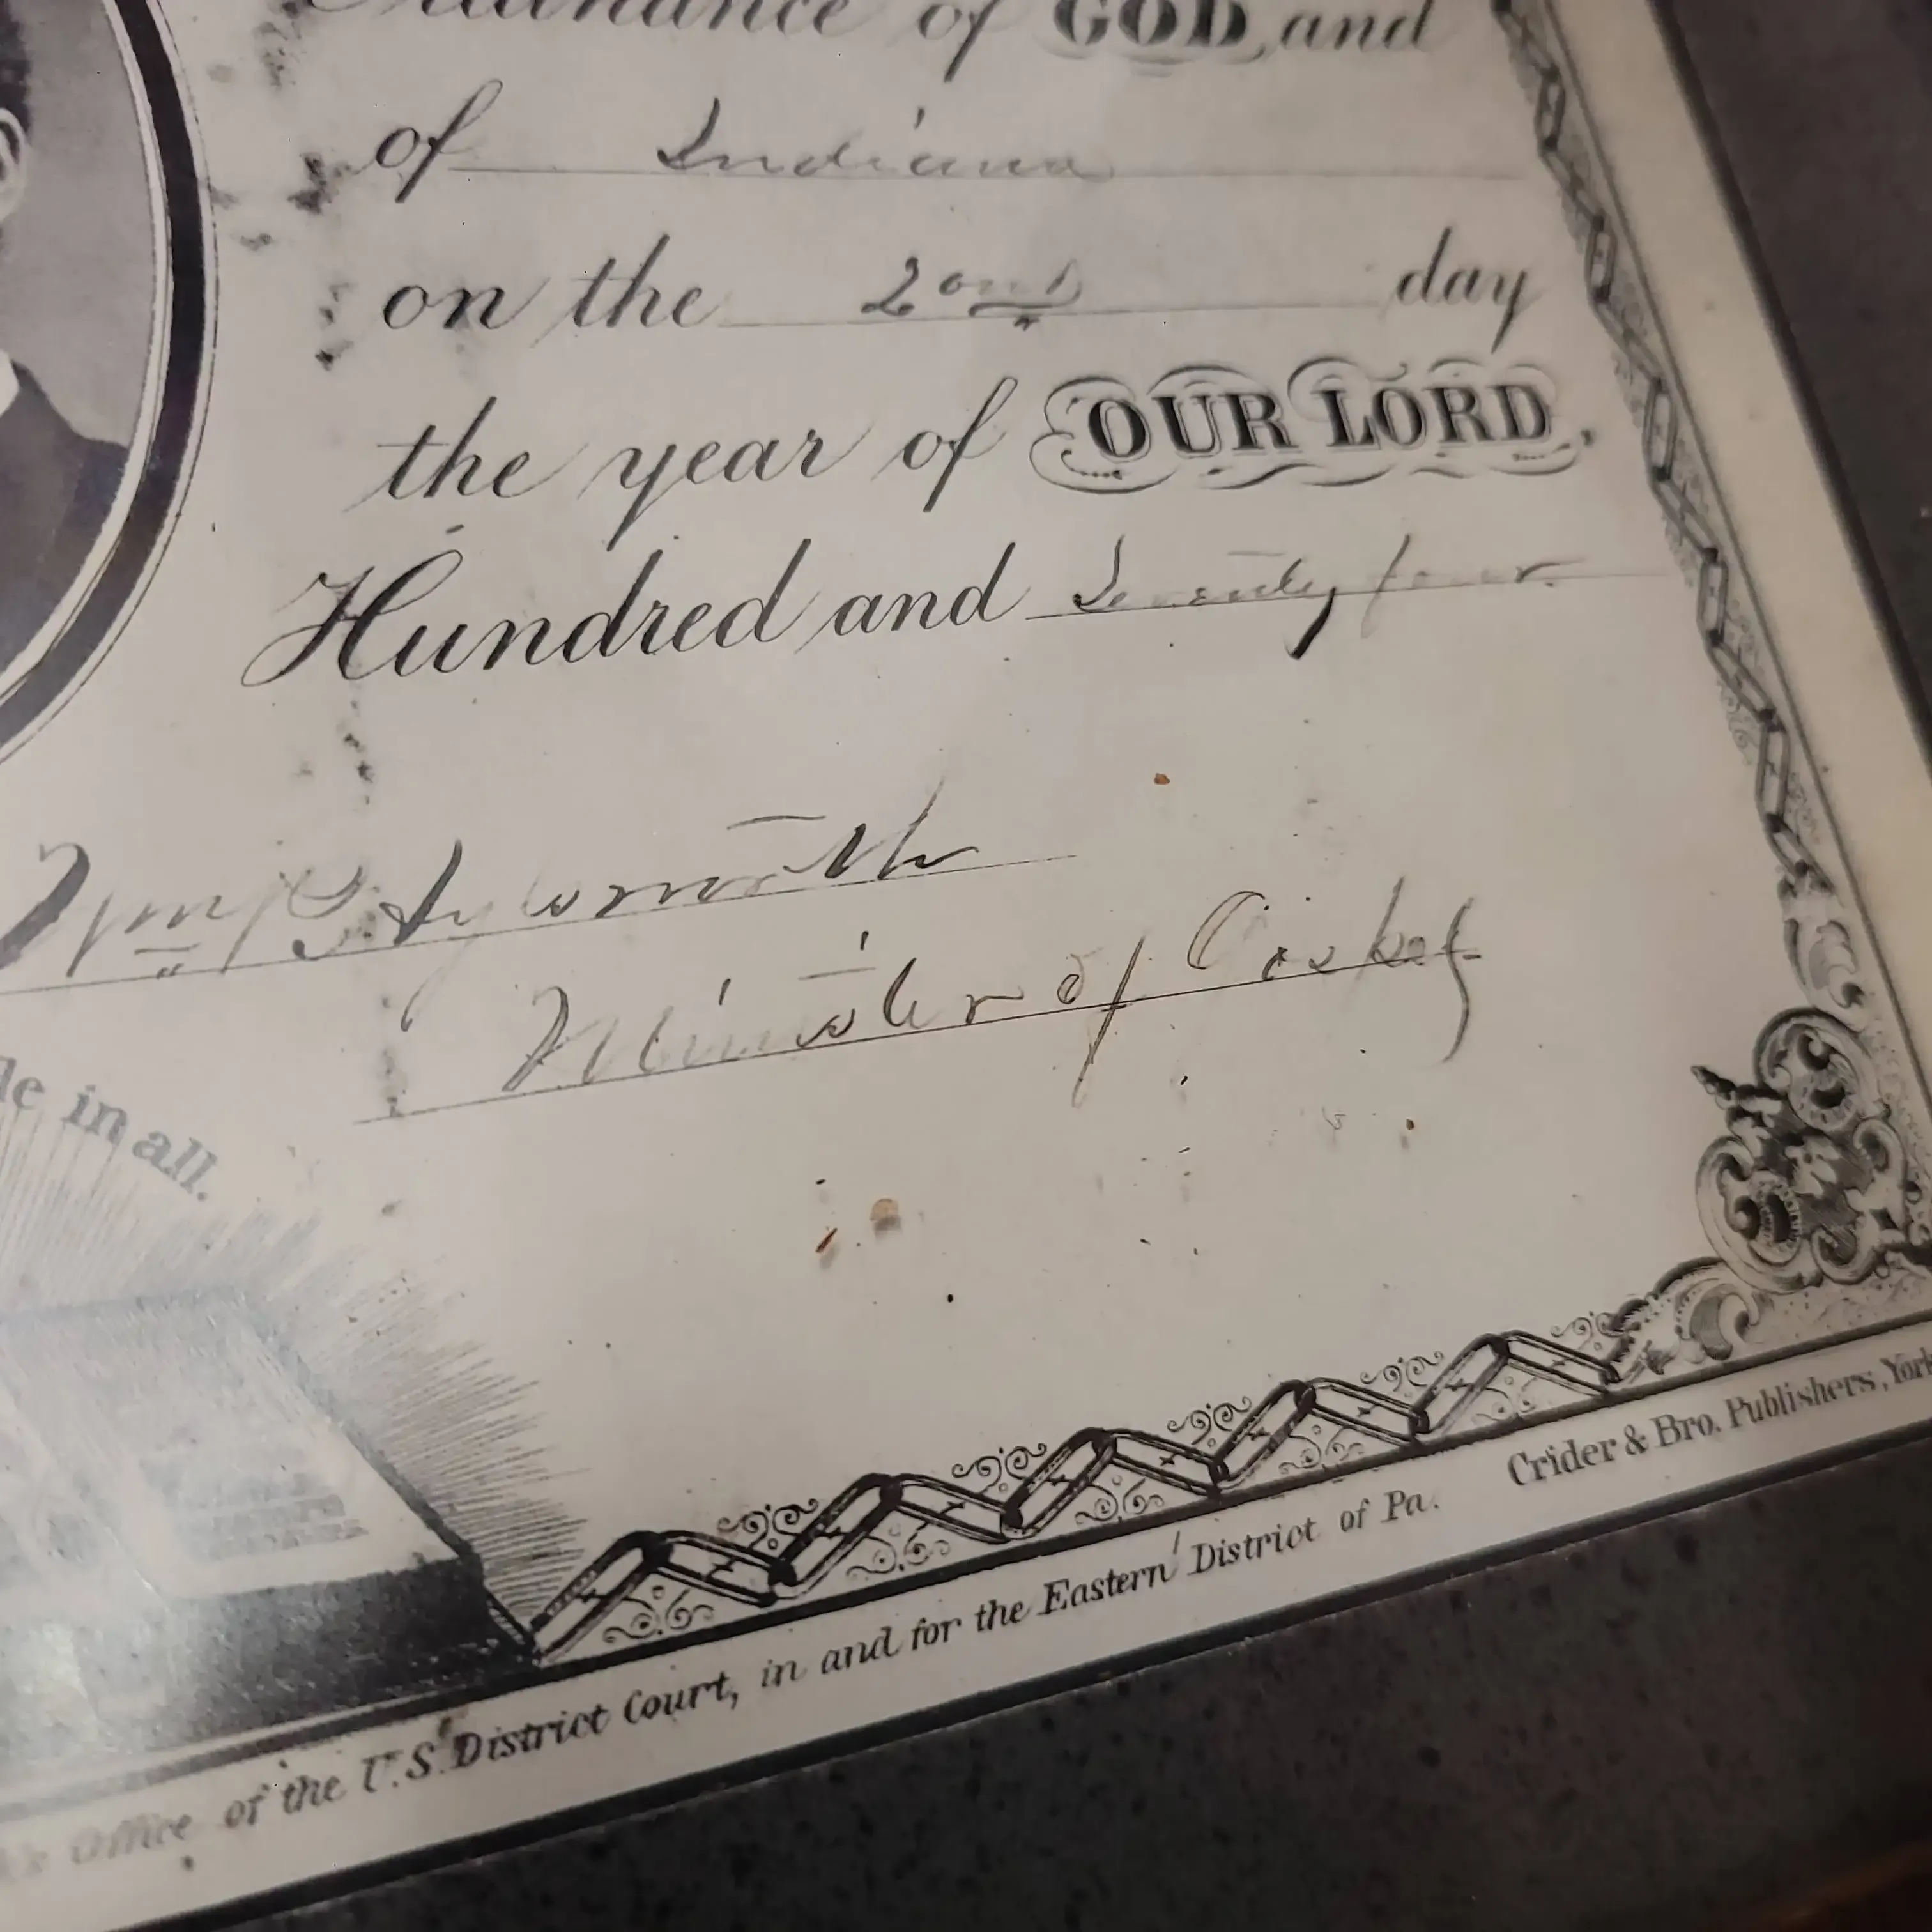 Ordinance of GOD, and
of Indiana
on the 2ond day
the year of OUR LORD,
Hundred and Seventy four.
Wm P Aylsworth
Minister of
le in all.
Office of the U.S. District Court, in and for the Eastern District of Pa. Crider & Bro. Publishers, York